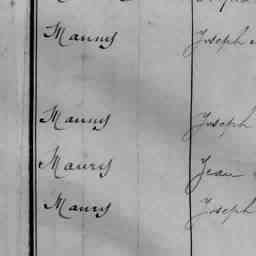 Manny Joseph
Manny Joseph
Maury Jean
Maury Joseph